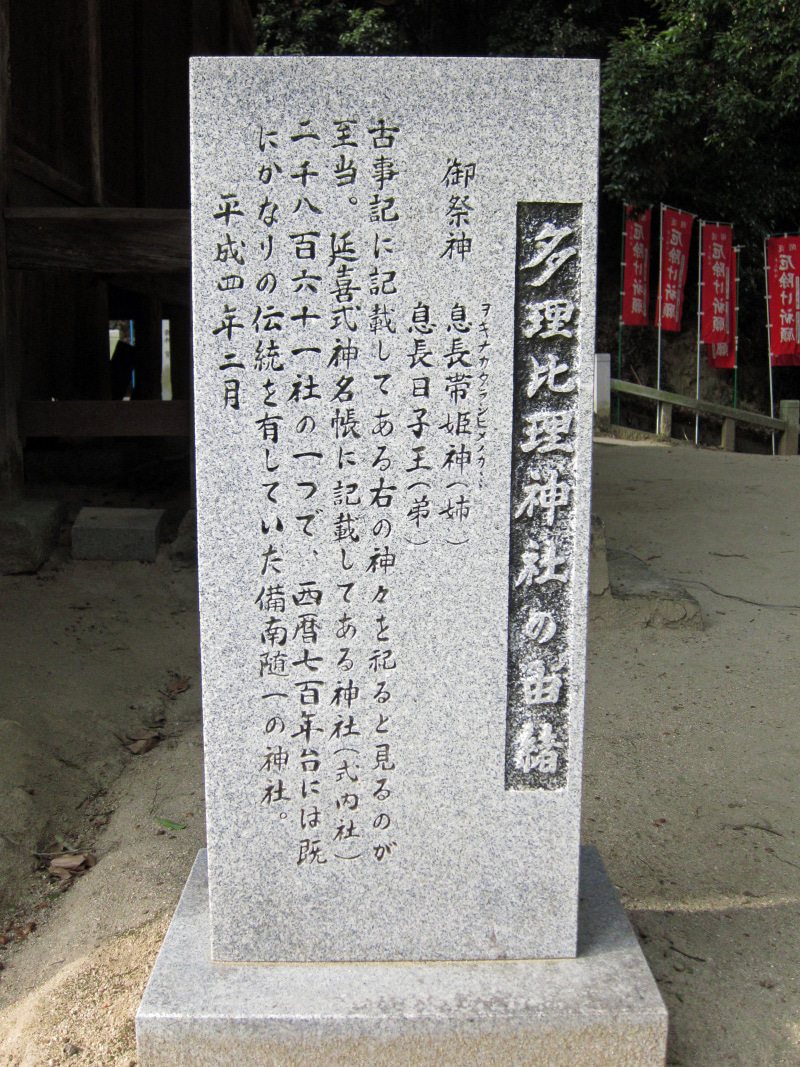 多理比理神社の由緒
御祭神 息長帯姫神(姉)
息長日子王(弟)
古事記に記載してある右の神々を祀ると見るのが
至当。延喜式神名帳に記載してある神社(式内社)
二千八百六十一社の一つで、西暦七百年台には既
にかなりの伝統を有していた備南随一の神社。
平成四年二月
厄除け祈願
厄除け祈願
厄除け祈願
厄除け祈願